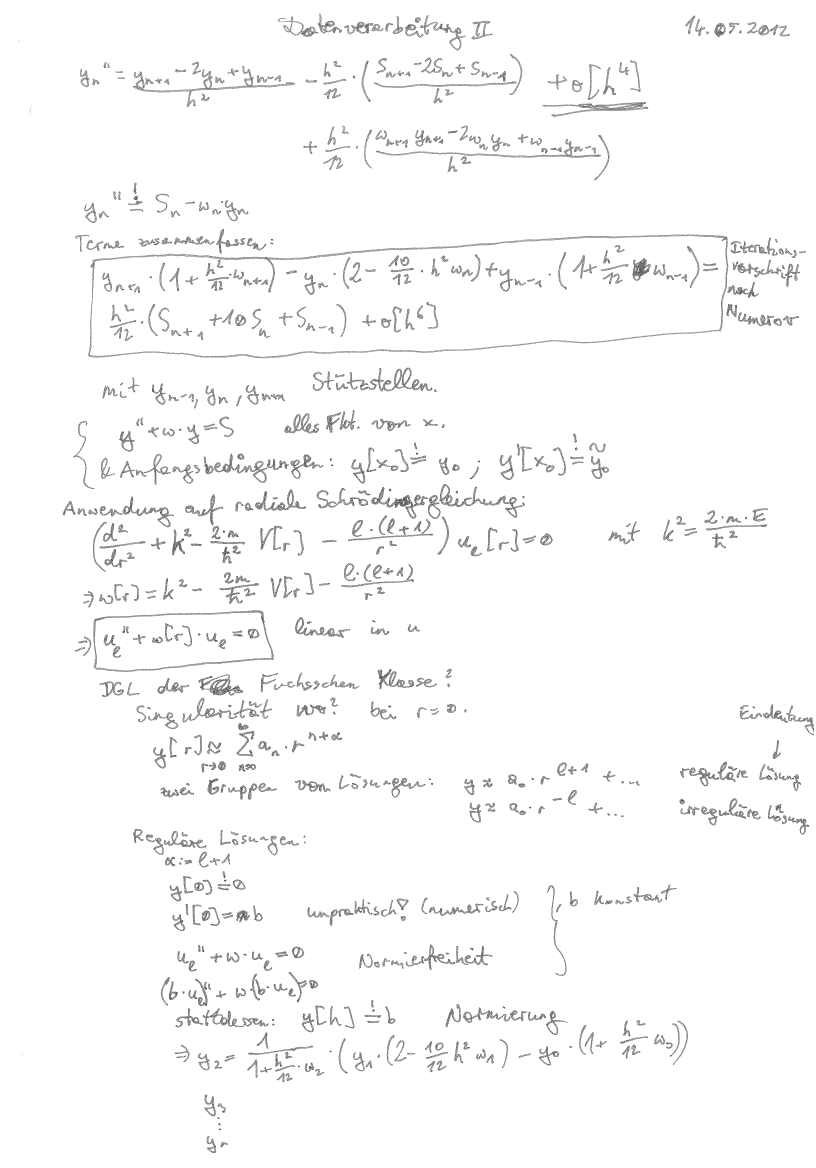 Datenverarbeitung II 14.05.2012
yₙ'' = (yₙ₊₁ − 2yₙ + yₙ₋₁)/h² − h²/12 · ((Sₙ₊₁ − 2Sₙ + Sₙ₋₁)/h²) + o[h⁴]
+ h²/12 · ((ωₙ₊₁ yₙ₊₁ − 2ωₙ yₙ + ωₙ₋₁ yₙ₋₁)/h²)
yₙ'' =! Sₙ − ωₙ·yₙ
Terme zusammenfassen:
yₙ₊₁ · (1 + h²/12 · ωₙ₊₁) − yₙ · (2 − 10/12 · h² ωₙ) + yₙ₋₁ · (1 + h²/12 ωₙ₋₁) =
h²/12 · (Sₙ₊₁ + 10 Sₙ + Sₙ₋₁) + o[h⁶]
Iterations-
vorschrift
nach
Numerov
mit yₙ₋₁, yₙ, yₙ₊₁ Stützstellen.
y'' + ω·y = S alles Fkt. von x.
& Anfangsbedingungen: y[x₀] =! y₀ ; y'[x₀] =! ỹ₀
Anwendung auf radiale Schrödingergleichung:
(d²/dr² + k² − 2·m/ħ² V[r] − l·(l+1)/r²) uₗ[r] = 0 mit k² = 2·m·E/ħ²
⇒ ω[r] = k² − 2m/ħ² V[r] − l·(l+1)/r²
⇒ uₗ'' + ω[r]·uₗ = 0 linear in u
DGL der Fuchsschen Klasse?
Singularität wo? bei r = 0.
y[r] ≈ (r→0) ∑ₙ₌₀^∞ aₙ · r^(n+α)
Eindeutung
↓
zwei Gruppen von Lösungen: y ≈ a₀ · r^(l+1) + ... reguläre Lösung
y ≈ a₀ · r^(−l) + ... irreguläre Lösung
Reguläre Lösungen:
α := l+1
y[0] =! 0
y'[0] = b unpraktisch! (numerisch) }, b konstant
uₗ'' + ω·uₗ = 0 Normierfreiheit
(b·uₗ)'' + ω·(b·uₗ) = 0
stattdessen: y[h] =! b Normierung
⇒ y₂ = 1/(1 + h²/12 · ω₂) · (y₁·(2 − 10/12 h² ω₁) − y₀ · (1 + h²/12 ω₀))
y₃
⋮
yₙ